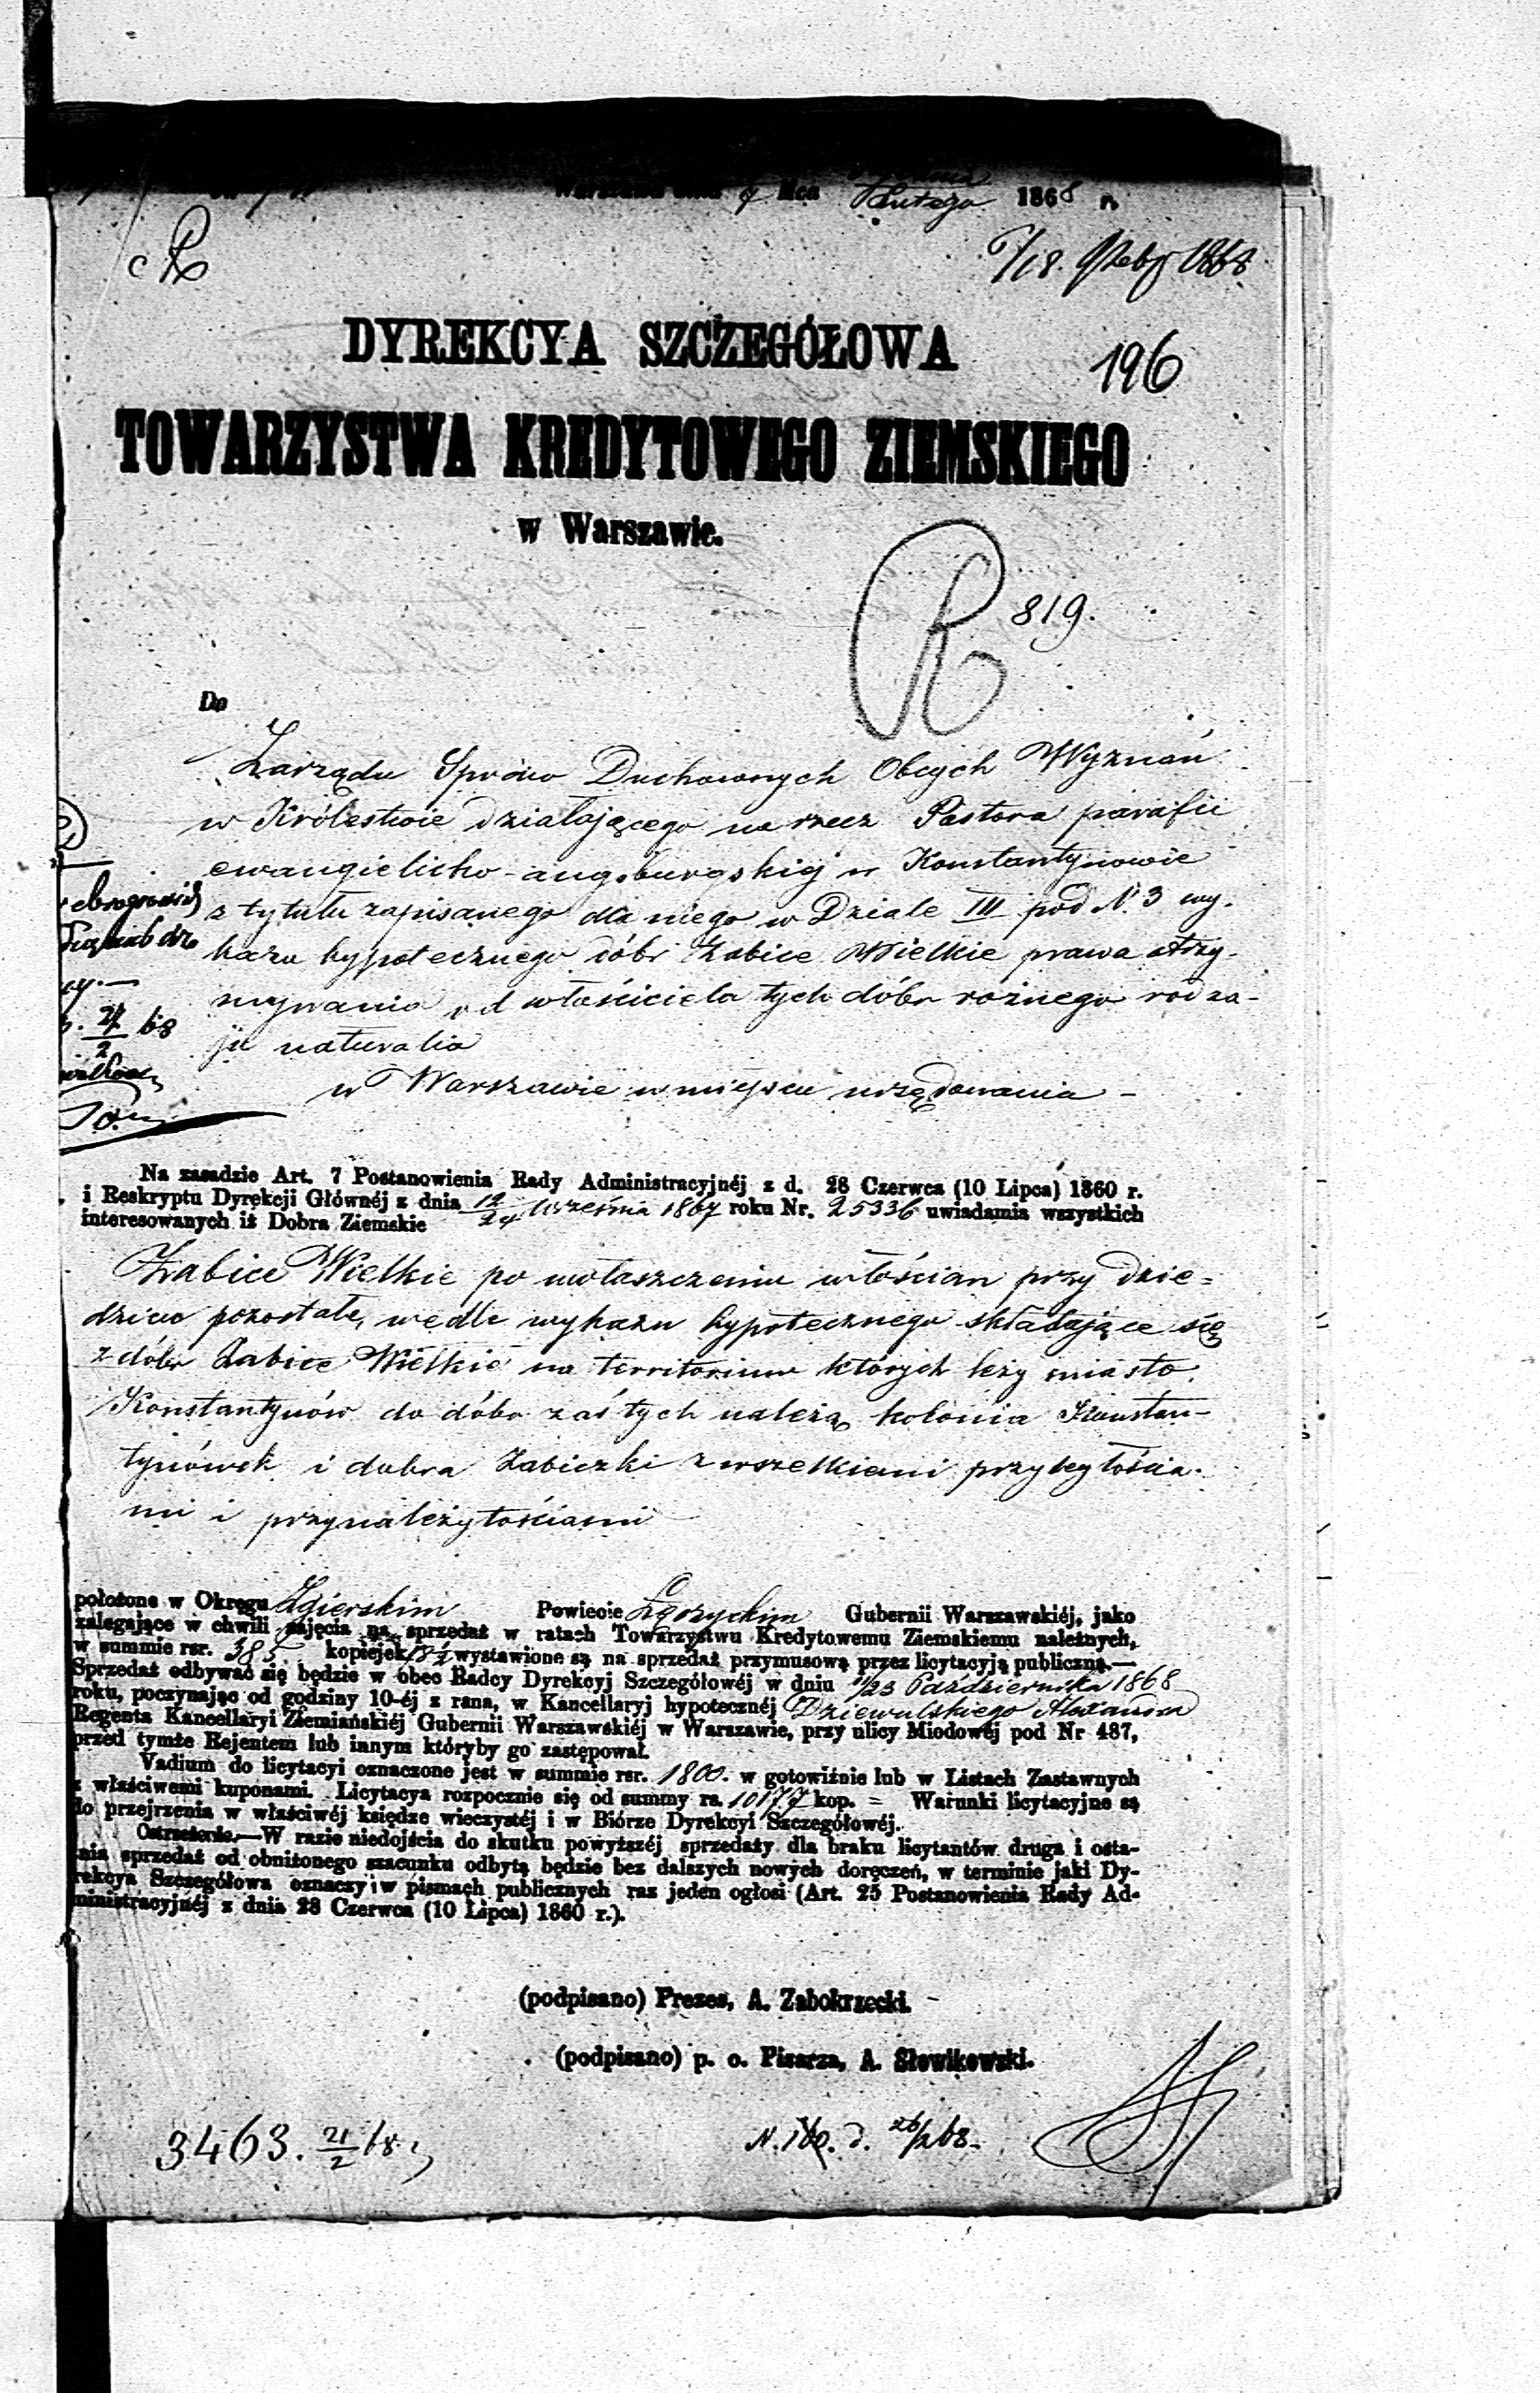 Warszawa dnia 7 Mca Lutego 1868 r.
6/18. Febr 1868
196
DYREKCYA SZCZEGÓŁOWA
TOWARZYSTWA KREDYTOWEGO ZIEMSKIEGO
w Warszawie.
R 819.
Do
Zarządu Spraw Duchownych Obcych Wyznań
w Królestwie działającego na rzecz Pastora parafii
ewangielicko-augsburgskiej w Konstantynowie
z tytułu zapisanego dla niego w Dziale III pod N. 3 wy-
kazu hypotecznego dóbr Żabice Wielkie prawa otrzy-
mywania od właściciela tych dóbr rożnego rodza-
ju naturalia
w Warszawie w miejscu urzędowania -
21/2 68
Na zasadzie Art. 7 Postanowienia Rady Administracyjnéj z d. 28 Czerwca (10 Lipca) 1860 r.
i Reskryptu Dyrekcji Głównéj z dnia 12/24 Września 1867 roku Nr. 25336 uwiadamia wszystkich
interesowanych iż Dobra Ziemskie
Żabice Wielkie po uwłaszczeniu włościan przy dzie=
dzicu pozostałe, wedle wykazu hypotecznego składające się
z dóbr Żabice Wielkie na territorium których leży miasto
Konstantynów do dóbr zaś tych należą kolonia Konstan-
tynówek i dobra Żabiczki z wszelkiemi przyległościa-
mi i przynależytościami
położone w Okręgu Zgierskim Powiecie Łęczyckim Gubernii Warszawskiéj, jako
zalegające w chwili zajęcia na sprzedaż w ratach Towarzystwu Kredytowemu Ziemskiemu należnych,
w summie rsr. 385 kopiejek 18½ wystawione są na sprzedaż przymusową przez licytacyją publiczną.—
Sprzedaż odbywać się będzie w obec Radcy Dyrekcyj Szczegółowéj w dniu 11/23 Października 1868
roku, poczynając od godziny 10-éj z rana, w Kancellaryj hypotecznéj Dziewulskiego Alexandra
Regenta Kancellaryi Ziemiańskiéj Gubernii Warszawskiéj w Warszawie, przy ulicy Miodowéj pod Nr 487,
przed tymże Rejentem lub innym któryby go zastępował.
Vadium do licytacyi oznaczone jest w summie rsr. 1800. w gotowiźnie lub w Listach Zastawnych
z właściwemi kuponami. Licytacya rozpocznie się od summy rs. 10177 kop. = Warunki licytacyjne są
do przejrzenia w właściwéj księdze wieczystéj i w Biórze Dyrekcyi Szczegółowéj.
Ostrzeżenie.—W razie niedojścia do skutku powyższéj sprzedaży dla braku licytantów druga i osta-
tnia sprzedaż od obniżonego szacunku odbytą będzie bez dalszych nowych doręczeń, w terminie jaki Dy-
rekcya Szczegółowa oznaczy i w pismach publicznych raz jeden ogłosi (Art. 25 Postanowienia Rady Ad-
ministracyjnéj z dnia 28 Czerwca (10 Lipca) 1860 r.).
(podpisano) Prezes, A. Zabokrzecki.
(podpisano) p. o. Pisarza, A. Słowikowski.
3463. 21/2 68